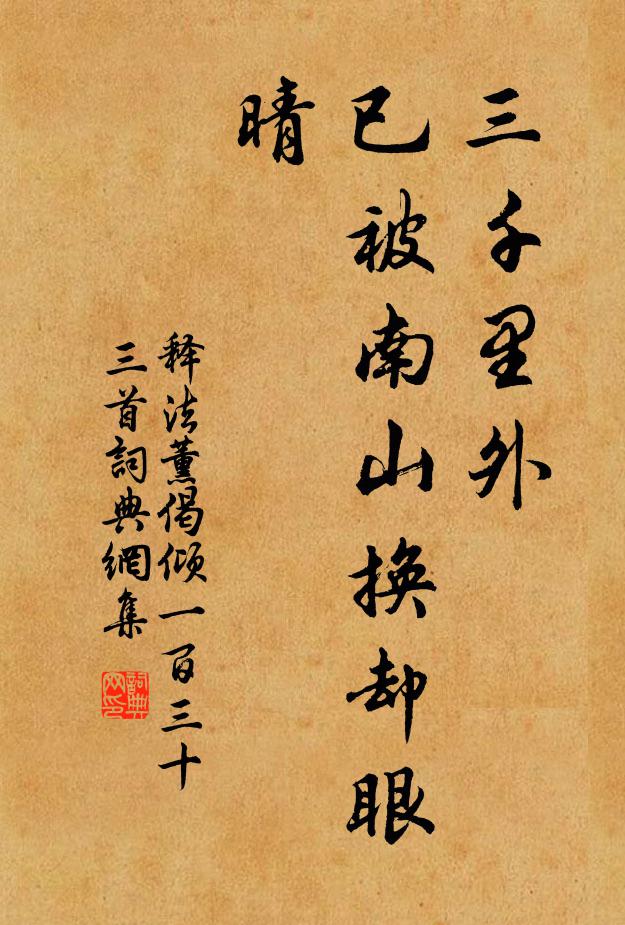 三千里外
已被南山换却眼
晴
释法薰偈倾一百三十
三首詞典網集
詞典网印